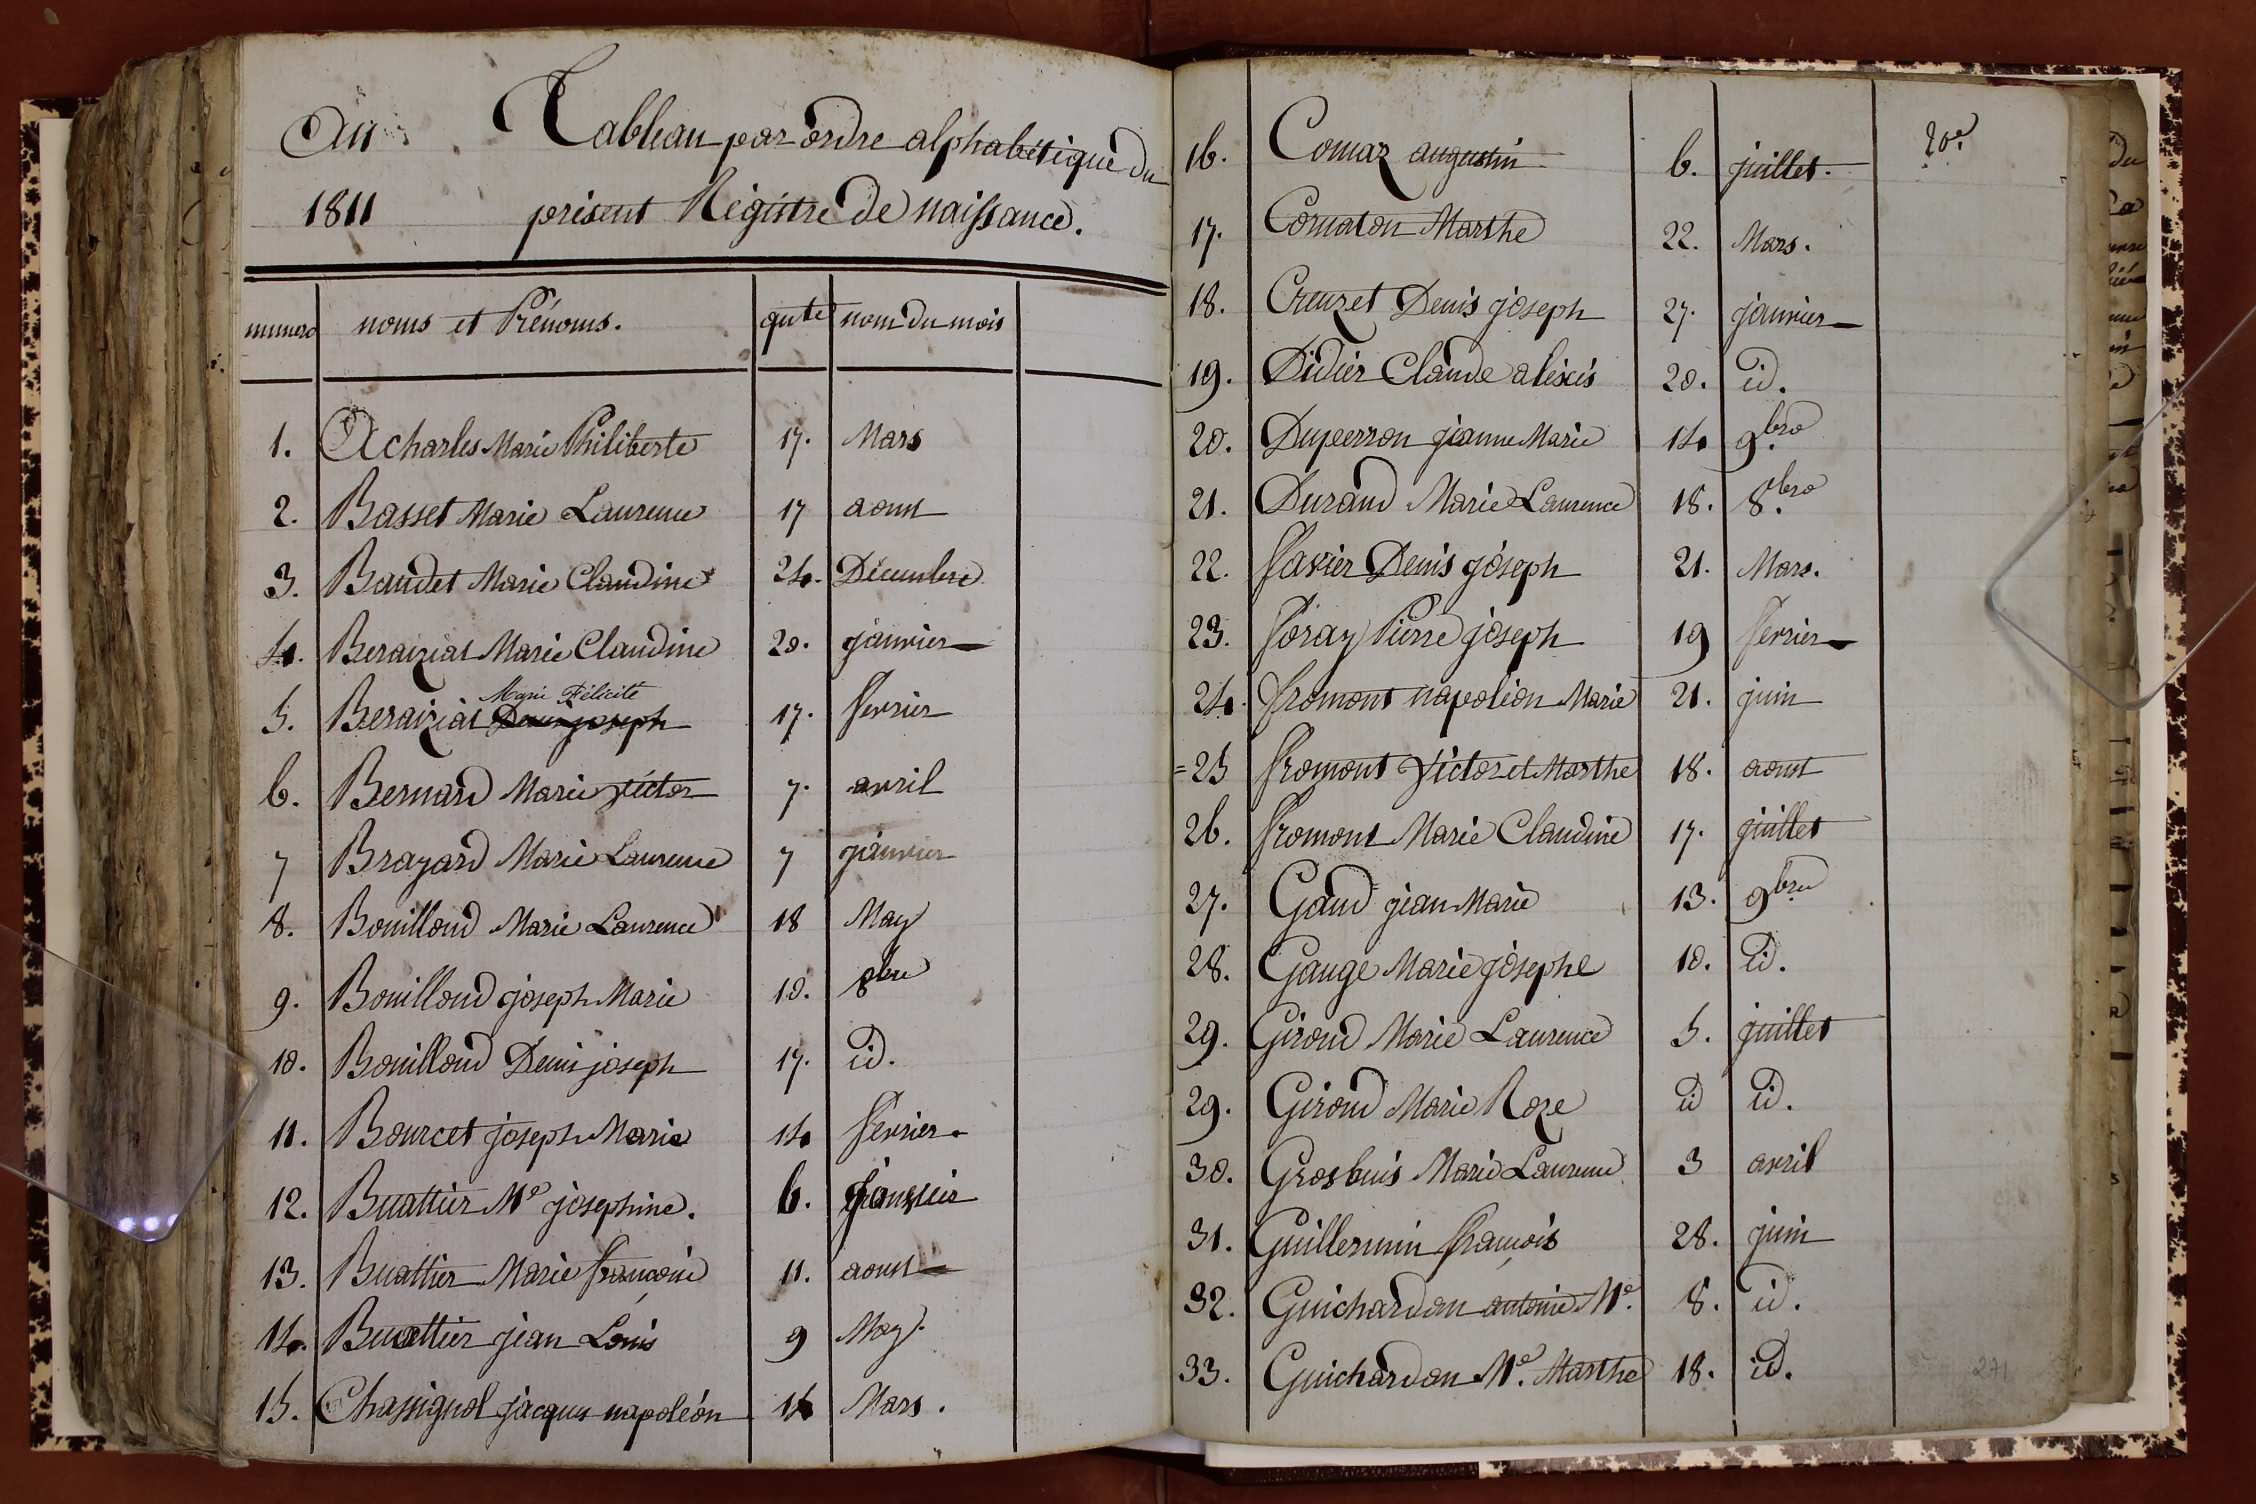 An Tableau par ordre alphabétique du
1811 présent Régistre de naissance.
numero noms et Prénoms. qnte nom du mois
1. Acharles Marie Philiberte 17. Mars
2. Basset Marie Laurence 17 aoust
3. Baudet Marie Claudine 24. Décembre
4. Beraiziat Marie Claudine 20. janvier
Marie Félicité
5. Beraiziat Denis joseph 17. fevrier
6. Bernard Marie victor 7. avril
7 Brazard Marie Laurence 7 janvier
8. Bouilloud Marie Laurence 18 May
9. Bouilloud joseph Marie 10. 8bre
10. Bouilloud Denis joseph 17. id.
11. Bourcet joseph Marie 14 fevrier.
12. Buattier Me josephine. 6. janvier
13. Buattier Marie françoise 11. aoust
14. Buattier jean Louis 9 May.
15. Chassignol jacques napoléon 14 Mars.
20e.
16. Comaz augustin 6. juillet.
17. Comaton Marthe 22. Mars.
18. Creuzet Denis joseph 27. janvier
19. Didier Claude alexis 20. id.
20. Duperron jeanne Marie 14 9bre
21. Durand Marie Laurence 18. 8bre
22. favier Denis joseph 21. Mars.
23. foray Pierre joseph 19 fevrier
24. fromont napoléon Marie 21. juin
=25 fromont victor et Marthe 18. aoust
26. fromont Marie Claudine 17. juillet
27. Gaud jean Marie 13. 9bre
28. Gauge Marie josephe 10. id.
29. Giroud Marie Laurence 5. juillet
29. Giroud Marie Roze id id.
30. Grosbuis Marie Laurence 3 avril
31. Guillermin françois 28. juin
32. Guichardon antoine Me. 8. id.
33. Guichardon Me. Marthe 18. id.
271